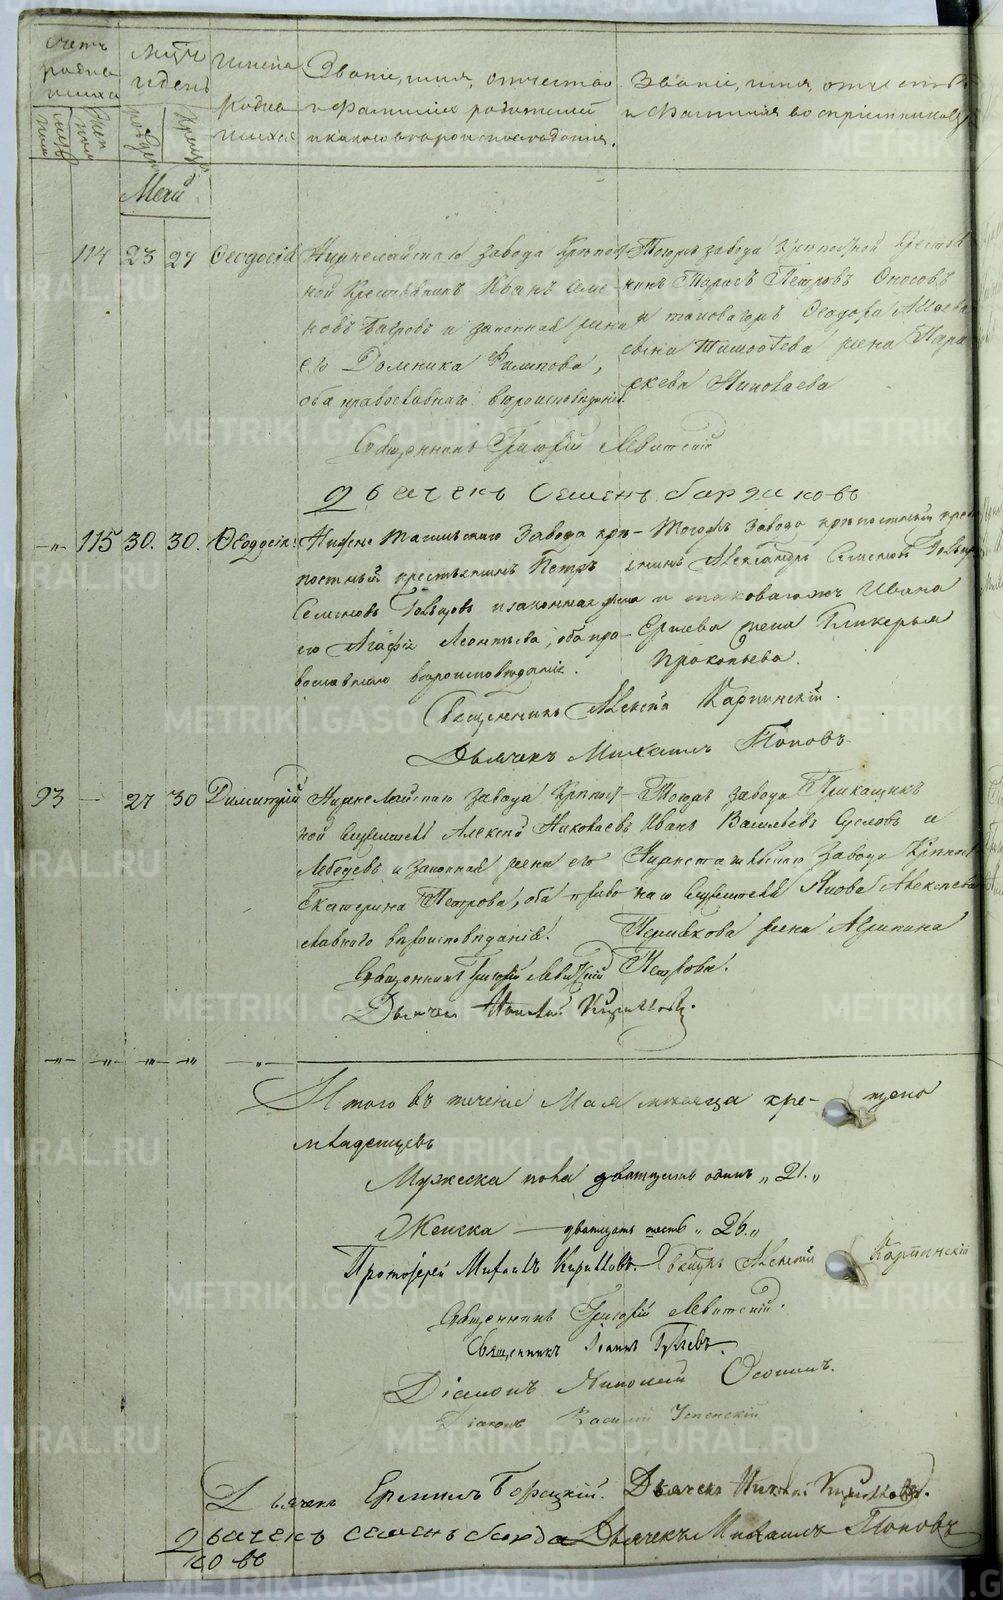 Счетъ родив шихся
Мужеска пола
Женска пола
Мсцъ и день
рожден
крещен
Имена родив шихся
Званіе, имя, отчество и Фамилія родителей и какаго вѣроисповѣданія.
Званіе, имя, отчество и Фамилія воспріемниковъ
Маій
114 23 27 Ѳеодосія
Нижнелайскаго завода Крѣпост
ной Крестьянинъ Иванъ Семе
новъ и законная жена
его Домника Филипова,
оба православнаго вѣроисповеданія.
Тогожъ завода Крѣпостной Крестья
нинъ Тарасъ Петровъ
и таковагожъ Ѳедора
Тимофѣева жена Пара
скева Николаева
Священникъ Григорій Левитскій
Дьячекъ Семенъ бардаковъ
—„— 115 30. 30. Ѳеодосія
Нижне Тагильскаго Завода крѣ-
постный крестьянинъ Петръ
Семеновъ и законная жена
его Агафія Леонтьева, оба пра-
вославнаго вѣроисповѣданія.
Тогожъ Завода крѣпостный кресть
янинъ Александръ Семеновъ
и таковагожъ Ивана
жена Гликерья
Прокопьева.
Священникъ Алексій Карпинскій.
Дьячекъ Михаилъ Поповъ.
93 — 27 30 Димитрій
Нижнелайскаго завода Крѣпост-
ной служитель Алексѣй Николаевъ
Лебедевъ и законная жена его
Екатерина Петрова, оба право
славнаго вѣроисповѣданія.
Тогожъ завода Прикащикъ
Иванъ Васильевъ Сусловъ и
Нижнетагильскаго завода Крѣпост
наго служителя Якова Алексѣева
жена Агрипина
Петрова.
Священникъ Григорій Левитскій
Дьячекъ Николай Кирилловъ.
—„— —„— —„— —„— —„—
Итого въ теченіе Мая мѣсяца кре- щено
младенцевъ
Мужеска пола двадцать одинъ „21.„
Женска — двадцать шесть „26.„
Протоіерей Михаилъ Кирилловъ. Священ. Алексій Карпинскій
Священникъ Григорій Левитскій.
Священникъ Іоаннъ
Діаконъ Николай Осокинъ.
Діаконъ Василій Успенскій
Дьячекъ Ермилъ Борецкій. Дьячекъ Николай Кирилловъ.
Дьячекъ семенъ барда Дьячекъ Михаилъ Поповъ
ковъ
METRIKI.GASO-URAL.RU